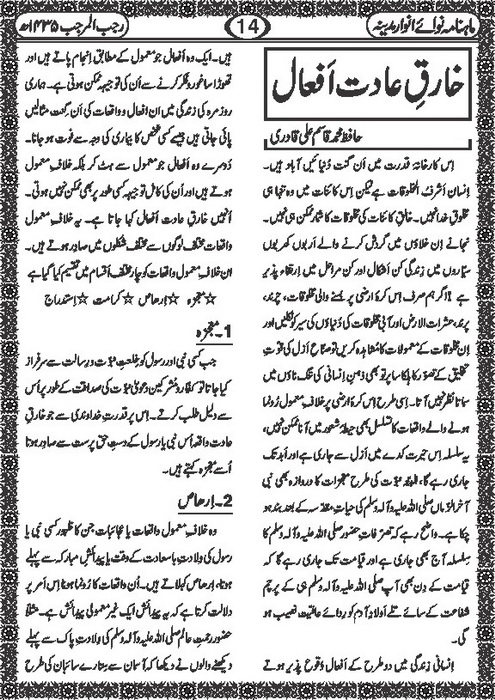 ماہنامہ نوائے انوار مدینہ
14
رجب المرجب ۱۴۳۵ھ
خارقِ عادت اَفعال
حافظ محمد قاسم علی قادری
اِس کارخانۂ قدرت میں اَن گنت دُنیائیں آباد ہیں۔
اِنسان اَشرف المخلوقات ہے لیکن اِس کائنات میں وہ تنہا ہی
مخلوقِ خدا نہیں۔ خالقِ کائنات کی مخلوقات کا شمار ممکن ہی نہیں۔
نجانے اِن خلاؤں میں گردش کرنے والے اَربوں کھربوں
سیّاروں میں زِندگی کن اَشکال اور کن مراحل میں اِرتقاء پذیر
ہے! اگر ہم صرف اِس کرۂ ارضی پر بسنے والی مخلوقات، چرند،
پرند، حشرات الارض اور آبی مخلوقات کی دُنیاؤں کی سیر کو نکلیں اور
اِن مخلوقات کے معمولات کا مشاہدہ کریں تو صنّاعِ اَزل کی قوتِ
تخلیق کے تصوّر کا ہلکا سا پرتو بھی ذہنِ اِنسانی کی تنگ ناؤں میں
سماتا نظر نہیں آتا۔ اِسی طرح اِس کرۂ ارضی پر خلافِ معمول رُونما
ہونے والے واقعات کا تسلسل بھی حیطۂ شعور میں آنا ممکن نہیں،
یہ سلسلہ اِس حیرت کدے میں اَزل سے جاری ہے اور اَبد تک
جاری رہے گا، البتہ نبوّت کی طرح معجزات کا دروازہ بھی نبی
آخرالزّماں صلی اللہ علیہ وآلہ وسلم کی حیاتِ مقدّسہ کے بعد بند ہو
چکا ہے۔ واضح رہے کہ تصرّفاتِ حضور صلی اللہ علیہ وآلہ وسلم کا
سلسلہ آج بھی جاری ہے اور قیامت تک جاری رہے گا کہ
قیامت کے دن بھی آپ صلی اللہ علیہ وآلہ وسلم ہی کے پرچمِ
شفاعت کے سائے تلے اَولادِ آدم کو رِدائے عافیت نصیب ہو
گی۔
اِنسانی زندگی میں دو طرح کے اَفعال وُقوع پذیر ہوتے
ہیں۔ ایک وہ اَفعال جو معمول کے مطابق اِنجام پاتے ہیں اور
تھوڑا سا غور و فکر کرنے سے اُن کی توجیہہ ممکن ہوتی ہے۔ ہماری
روز مرہ کی زندگی میں اِن افعال و واقعات کی اَن گِنت مثالیں
پائی جاتی ہیں جیسے کسی شخص کا بیماری کی وجہ سے فوت ہو جانا۔
دُوسرے وہ اَفعال جو معمول سے ہٹ کر بلکہ خلافِ معمول
ہوتے ہیں اور اُن کی کامل توجیہہ کسی طور پر بھی ممکن نہیں ہوتی۔
اُنہیں خارقِ عادت اَفعال کہا جاتا ہے۔ یہ خلافِ معمول
واقعات مختلف لوگوں سے مختلف شکلوں میں صادِر ہوتے ہیں۔
اِن خلافِ معمول واقعات کو چار مختلف اَقسام میں تقسیم کیا گیا ہے
☆معجزہ ☆اِرہاص ☆کرامت ☆اِستدراج
1۔معجزہ
جب کسی نبی اور رسول کو خلعتِ نبوّت و رِسالت سے سرفراز
کیا جاتا تو کفار و مشرکین دعویٰ نبوّت کی صداقت کے طور پر اُس
سے دلیل طلب کرتے۔ اِس پر قدرتِ خداوندی سے جو خارقِ
عادت واقعہ اُس نبی یا رسول کے دستِ حق پرست سے صادِر ہوتا
اُسے معجزہ کہتے ہیں۔
2۔اِرہاص
وہ خلافِ معمول واقعات یا عجائبات جن کا ظہور کسی نبی یا
رسول کی وِلادتِ باسعادت کے وقت یا پیدائشِ مبارکہ سے پہلے
ہوتا ہے، اِرہاص کہلاتے ہیں۔ اُن واقعات کا رُونما ہونا اِس اَمر پر
دلالت کرتا ہے کہ یہ پیدائش ایک غیر معمولی پیدائش ہے۔ مثلاً
حضور رحمتِ عالم صلی اللہ علیہ وآلہ وسلم کی ولادتِ پاک سے پہلے
دیکھنے والوں نے دیکھا کہ آسمان سے ستارے سائبان کی طرح